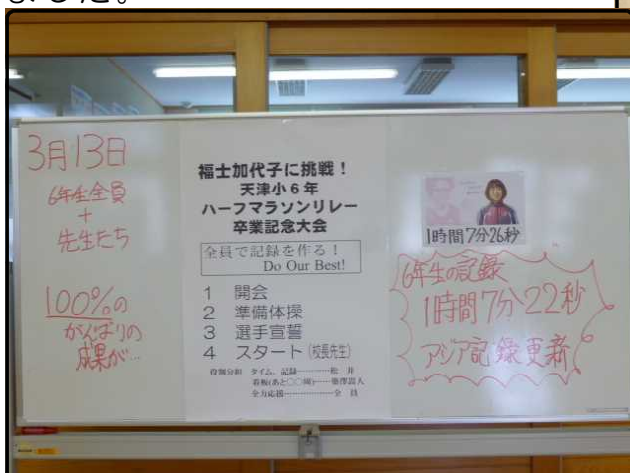 ました。
3月13日
6年生全員
+
先生たち
100%の
がんばりの
成果が…
福士加代子に挑戦！
天津小6年
ハーフマラソンリレー
卒業記念大会
全員で記録を作る！
Do Our Best!
1 開会
2 準備体操
3 選手宣誓
4 スタート(校長先生)
役割分担 タイム、記録…………松 井
看板(あと○○周)……
全力応援………………全 員
1時間7分26秒
6年生の記録
1時間7分22秒
アジア記録更新